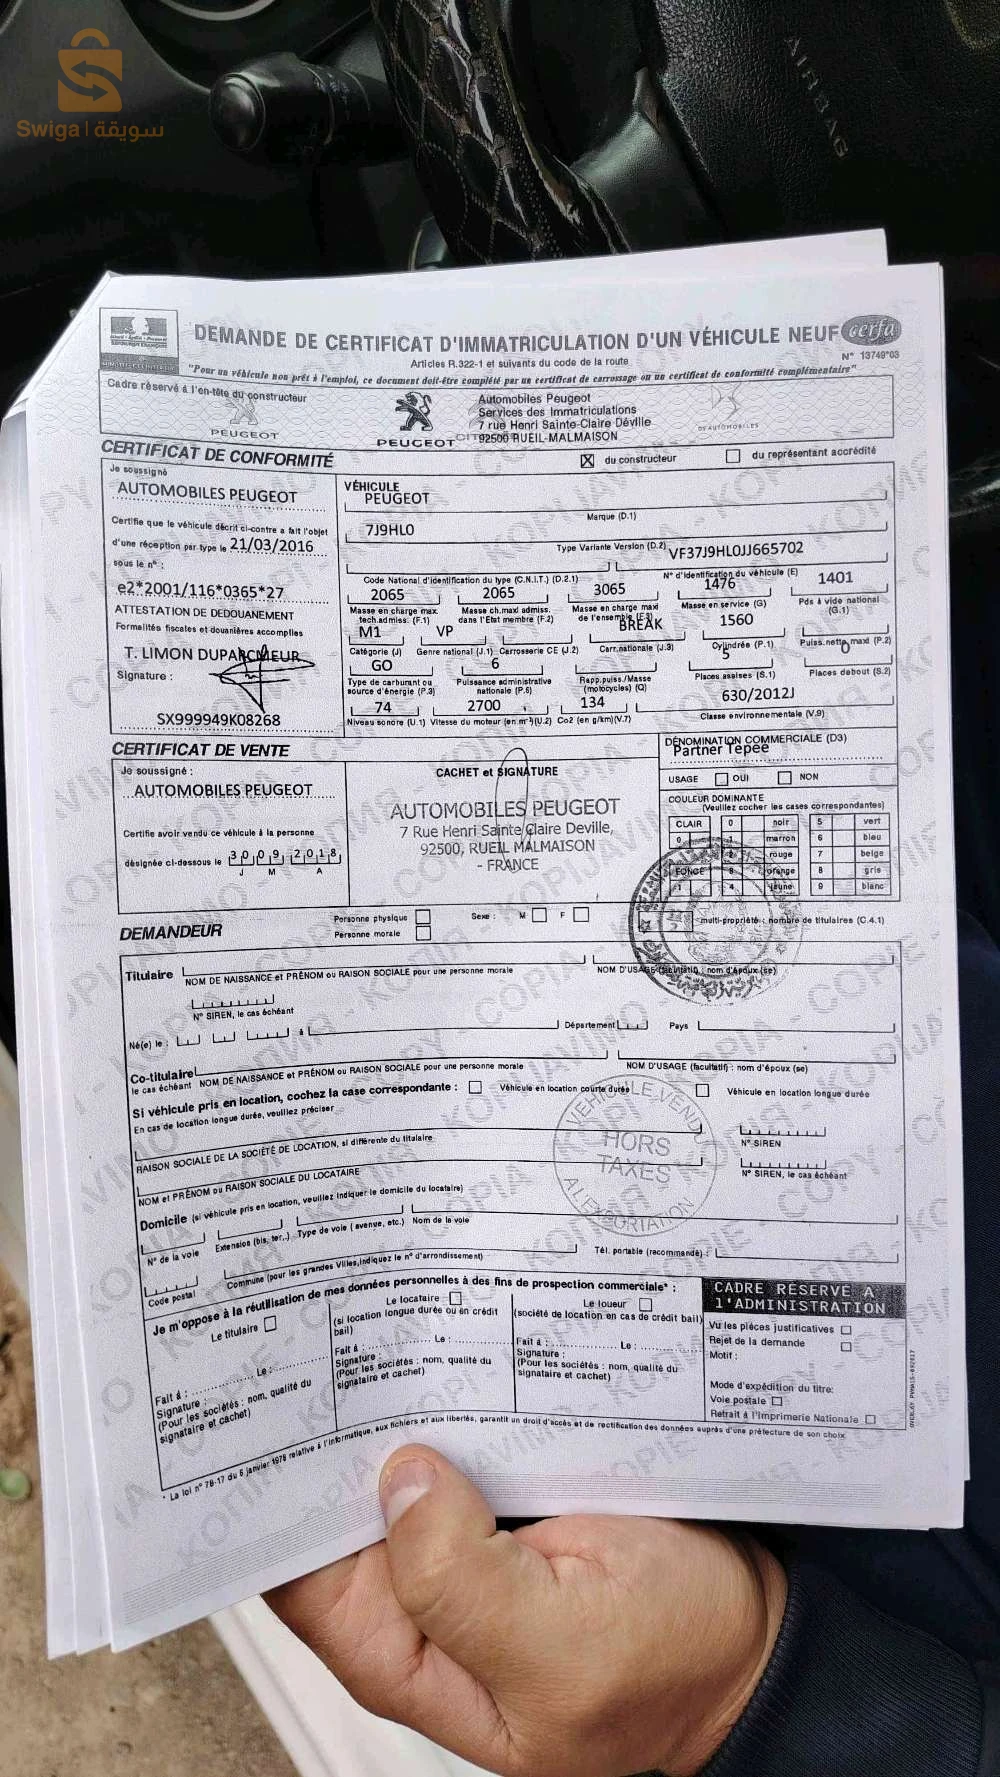 Swiga | سويقة
AIRBAG
DEMANDE DE CERTIFICAT D'IMMATRICULATION D'UN VÉHICULE NEUF
cerfa
N° 13749*03
Articles R.322-1 et suivants du code de la route
"Pour un véhicule non prêt à l'emploi, ce document doit-être complété par un certificat de carrossage ou un certificat de conformité complémentaire"
Cadre réservé à l'en-tête du constructeur
PEUGEOT
PEUGEOT
Automobiles Peugeot
Services des Immatriculations
7 rue Henri Sainte-Claire Déville
92500 RUEIL-MALMAISON
DS AUTOMOBILES
CERTIFICAT DE CONFORMITÉ
du constructeur
du représentant accrédité
Je soussigné
AUTOMOBILES PEUGEOT
Certifie que le véhicule décrit ci-contre a fait l'objet
d'une réception par type le 21/03/2016
sous le n° :
e2*2001/116*0365*27
ATTESTATION DE DEDOUANEMENT
Formalités fiscales et douanières accomplies
T. LIMON DUPARCMEUR
Signature :
SX999949K08268
VÉHICULE
PEUGEOT
Marque (D.1)
7J9HL0
Type Variante Version (D.2)
VF37J9HL0JJ665702
Code National d'identification du type (C.N.I.T.) (D.2.1)
N° d'identification du véhicule (E)
2065 2065 3065 1476 1401
Masse en charge max. tech.admiss. (F.1)
Masse ch.maxi admiss. dans l'Etat membre (F.2)
Masse en charge maxi de l'ensemble (F.3)
Masse en service (G)
Pds à vide national (G.1)
M1 VP BREAK 1560
Catégorie (J) Genre national (J.1) Carrosserie CE (J.2) Carr.nationale (J.3) Cylindrée (P.1) Puiss.nette maxi (P.2)
GO 6 5 0
Type de carburant ou source d'énergie (P.3)
Puissance administrative nationale (P.6)
Rapp.puiss./Masse (motocycles) (Q)
Places assises (S.1)
Places debout (S.2)
74 2700 134 630/2012J
Niveau sonore (U.1) Vitesse du moteur (en mn-1)(U.2) Co2 (en g/km)(V.7) Classe environnementale (V.9)
CERTIFICAT DE VENTE
Je soussigné :
AUTOMOBILES PEUGEOT
Certifie avoir vendu ce véhicule à la personne
désignée ci-dessous le 30 09 2018
J M A
CACHET et SIGNATURE
AUTOMOBILES PEUGEOT
7 Rue Henri Sainte Claire Deville,
92500, RUEIL MALMAISON
- FRANCE
DÉNOMINATION COMMERCIALE (D3)
Partner Tepee
USAGE OUI NON
COULEUR DOMINANTE
(Veuillez cocher les cases correspondantes)
CLAIR 0 noir 5 vert
0 1 marron 6 bleu
2 rouge 7 beige
FONCE 3 orange 8 gris
1 4 jaune 9 blanc
multi-propriété : nombre de titulaires (C.4.1)
DEMANDEUR
Personne physique
Personne morale
Sexe : M F
Titulaire
NOM DE NAISSANCE et PRÉNOM ou RAISON SOCIALE pour une personne morale
NOM D'USAGE (facultatif) : nom d'époux (se)
N° SIREN, le cas échéant
Né(e) le : à Département Pays
Co-titulaire
le cas échéant NOM DE NAISSANCE et PRÉNOM ou RAISON SOCIALE pour une personne morale
NOM D'USAGE (facultatif) : nom d'époux (se)
Si véhicule pris en location, cochez la case correspondante :
Véhicule en location courte durée
Véhicule en location longue durée
En cas de location longue durée, veuillez préciser
RAISON SOCIALE DE LA SOCIÉTÉ DE LOCATION, si différente du titulaire
N° SIREN
NOM et PRÉNOM ou RAISON SOCIALE DU LOCATAIRE
N° SIREN, le cas échéant
VEHICULE VENDU
HORS
TAXES
A L'EXPORTATION
Domicile (si véhicule pris en location, veuillez indiquer le domicile du locataire)
N° de la voie Extension (bis, ter,.) Type de voie ( avenue, etc.) Nom de la voie
Tél. portable (recommandé) :
Code postal Commune (pour les grandes Villes,indiquez le n° d'arrondissement)
Je m'oppose à la réutilisation de mes données personnelles à des fins de prospection commerciale* :
Le titulaire
Fait à : Le :
Signature :
(Pour les sociétés : nom, qualité du
signataire et cachet)
Le locataire
(si location longue durée ou en crédit
bail)
Fait à : Le :
Signature :
(Pour les sociétés : nom, qualité du
signataire et cachet)
Le loueur
(société de location en cas de crédit bail)
Fait à : Le :
Signature :
(Pour les sociétés : nom, qualité du
signataire et cachet)
CADRE RÉSERVÉ A
l'ADMINISTRATION
Vu les pièces justificatives
Rejet de la demande
Motif :
Mode d'expédition du titre:
Voie postale
Retrait à l'Imprimerie Nationale
* La loi n° 78-17 du 6 janvier 1978 relative à l'informatique, aux fichiers et aux libertés, garantit un droit d'accès et de rectification des données auprès d'une préfecture de son choix